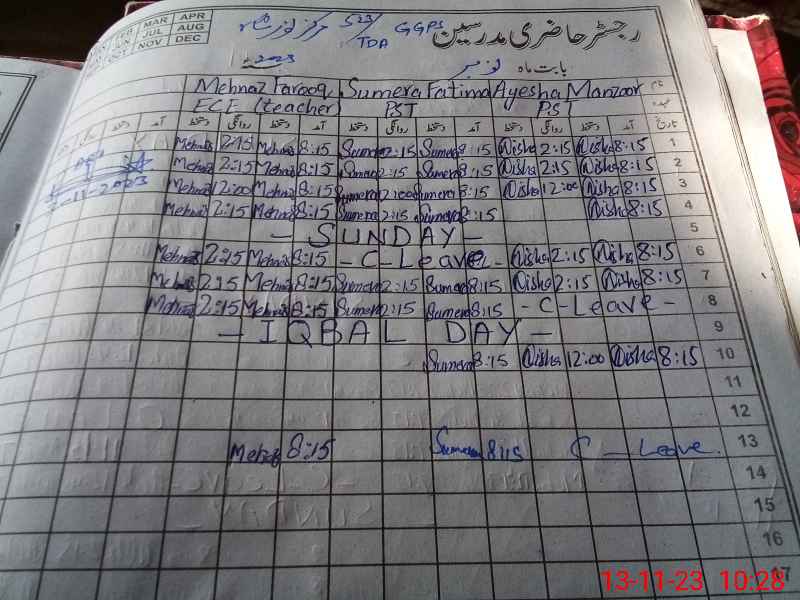 APR MAR
AUG JUL
DEC NOV
رجسٹر حاضری مدرسین GGPS 523/TDA مرکز
بابت ماہ نومبر 2023
نام Ayesha Manzoor Sumera Fatima Mehnaz Farooq
عہدہ PST PST ECE (teacher)
تاریخ آمد دستخط روانگی دستخط آمد دستخط روانگی دستخط آمد دستخط روانگی دستخط
Mehnaz 2:15 Mehnaz 8:15 Sumera 2:15 Sumera 8:15 Aisha 2:15 Aisha 8:15 1
Mehnaz 2:15 Mehnaz 8:15 Sumera 2:15 Sumera 8:15 Aisha 2:15 Aisha 8:15 2
Mehnaz 12:00 Mehnaz 8:15 Sumera 12:00 Sumera 8:15 Aisha 12:00 Aisha 8:15 3
Mehnaz 2:15 Mehnaz 8:15 Sumera 2:15 Sumera 8:15 Aisha 8:15 4
- SUNDAY - 5
Mehnaz 2:15 Mehnaz 8:15 - C - Leave - Aisha 2:15 Aisha 8:15 6
Mehnaz 2:15 Mehnaz 8:15 Sumera 2:15 Sumera 8:15 Aisha 2:15 Aisha 8:15 7
Mehnaz 2:15 Mehnaz 8:15 Sumera 2:15 Sumera 8:15 - C - Leave - 8
- IQBAL DAY - 9
Sumera 8:15 Aisha 12:00 Aisha 8:15 10
11
12
Mehnaz 8:15 Sumera 8:15 C - Leave. 13
14
15
16
17
13-11-23 10:28